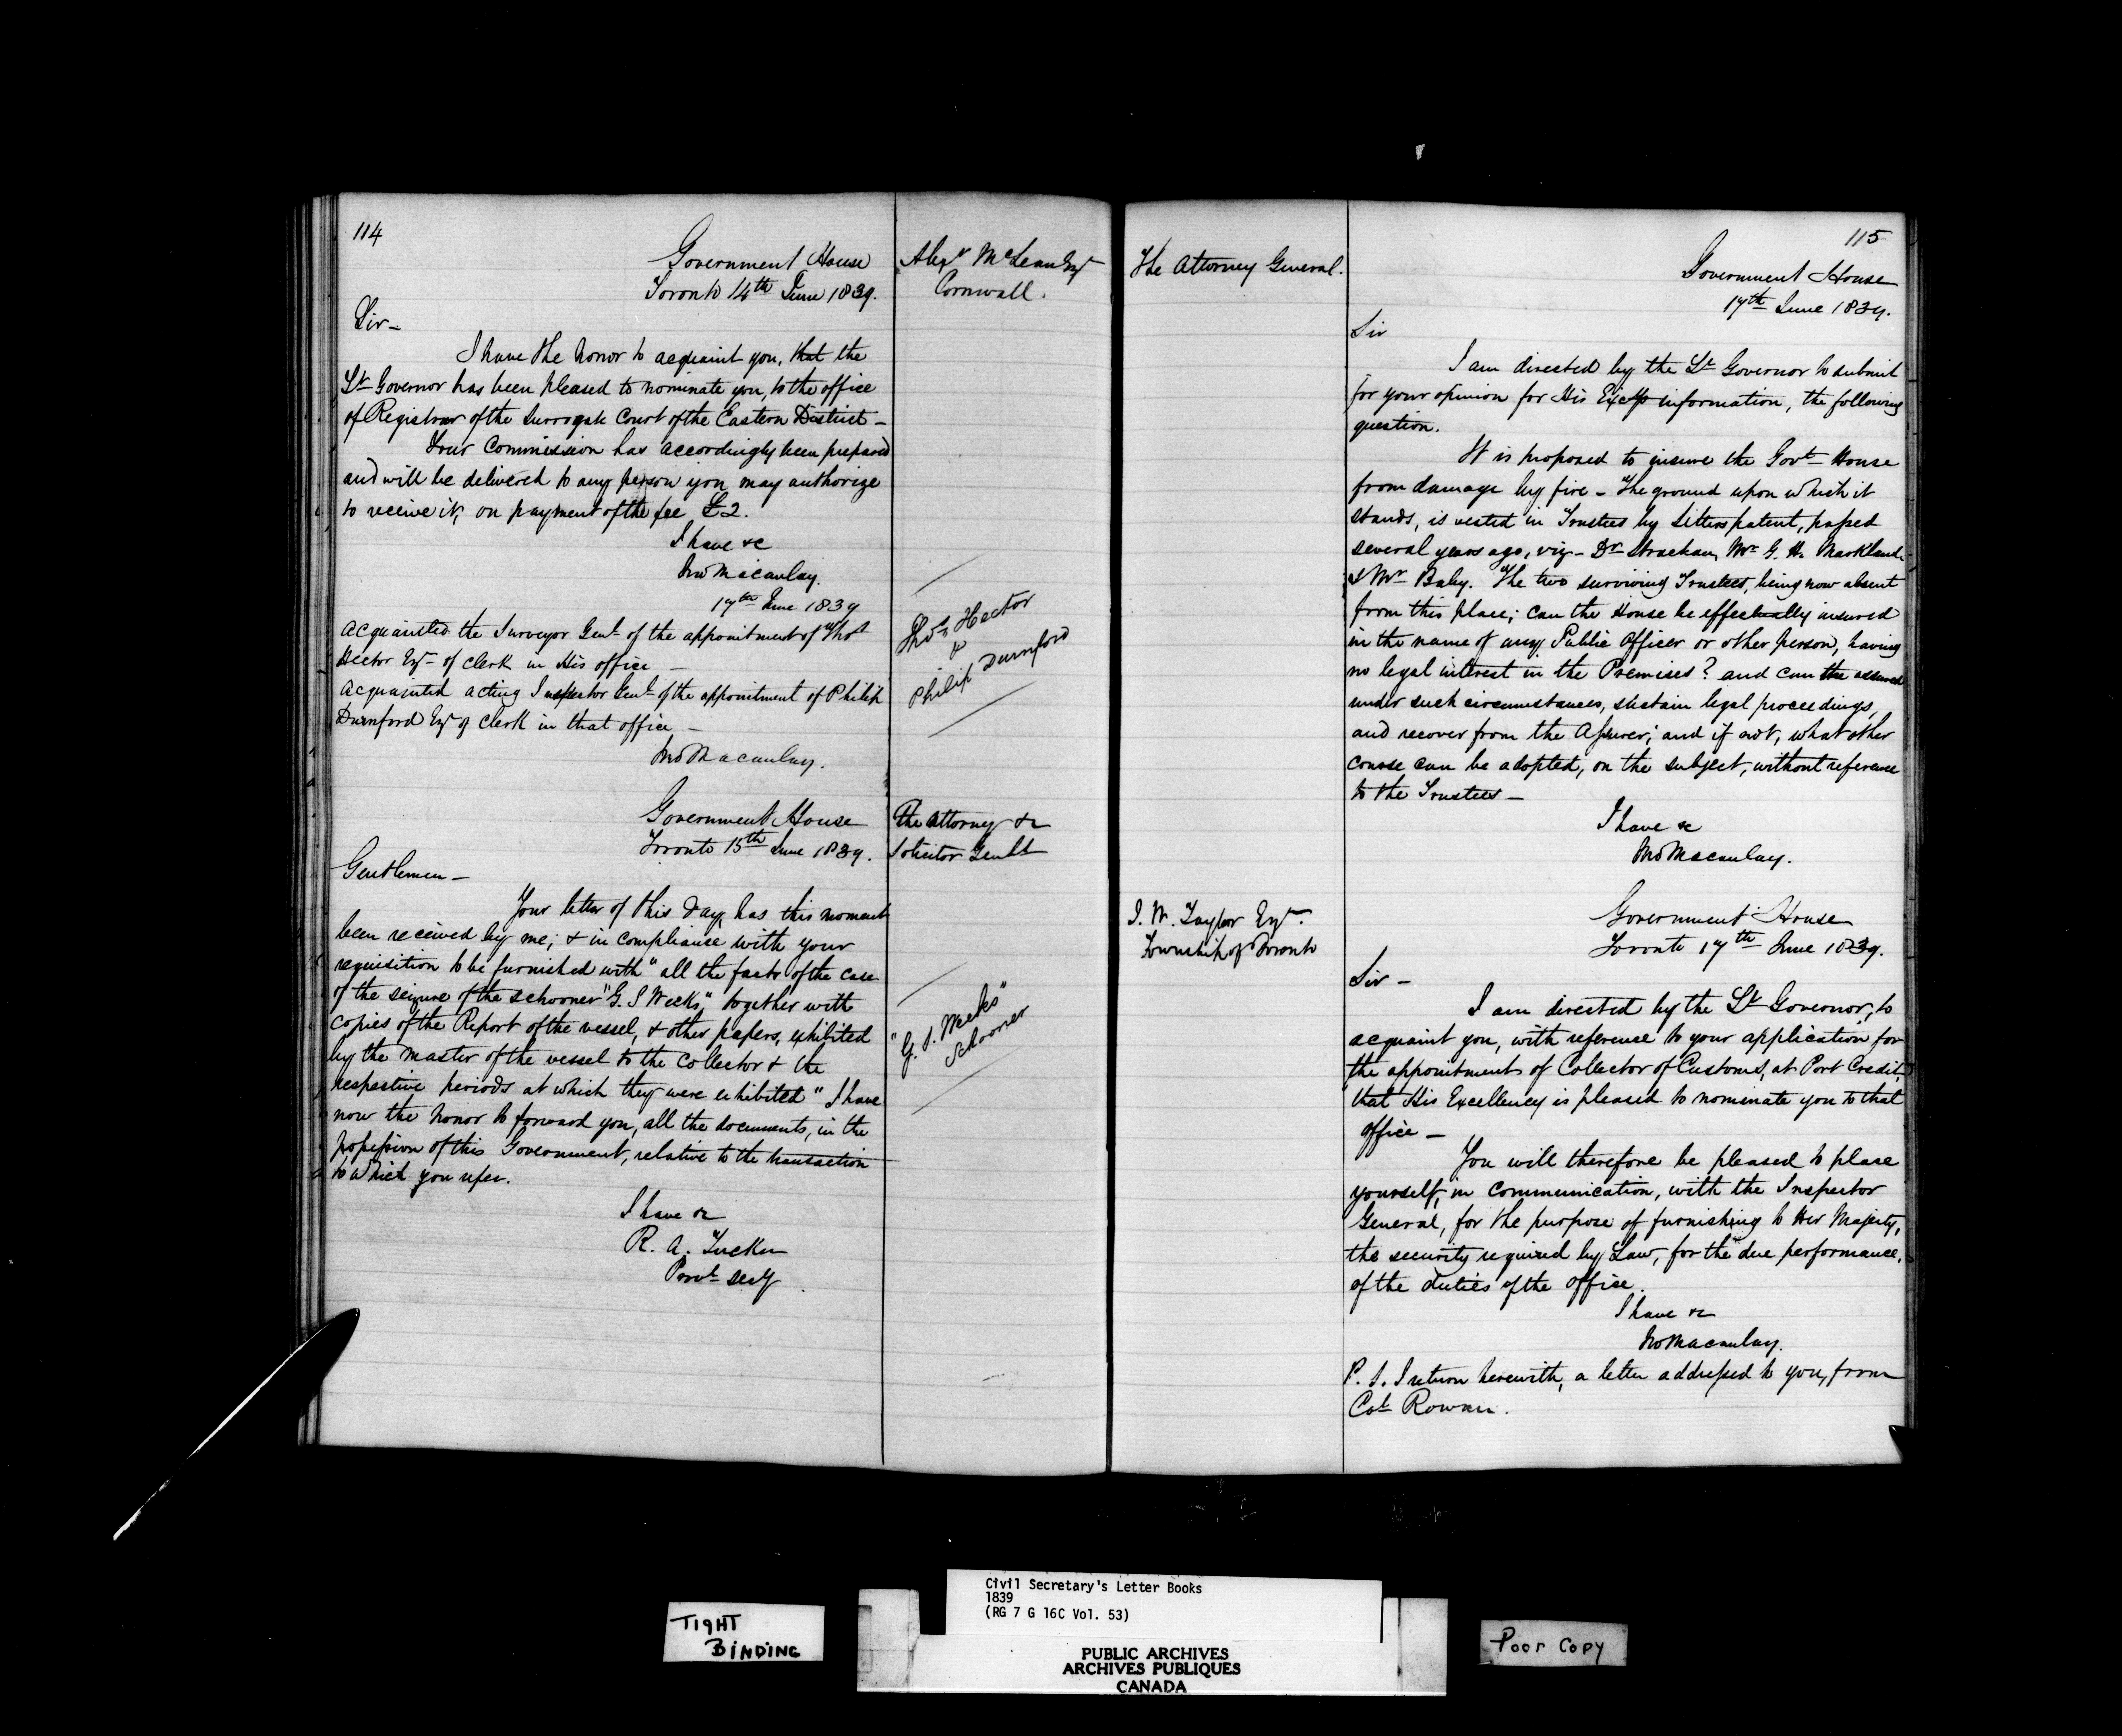 114
Government House
Toronto 14th June 1839.
Alexr McLean Esqr
Cornwall.
Sir-
I have the honor to acquaint you, that the
Lt Governor has been pleased to nominate you, to the office
of Registrar of the Surrogate Court of the Eastern District-
Your Commission has accordingly been prepared
and will be delivered to any person you may authorize
to receive it, on payment of the fee £2.
I have &c
Jno Macaulay.
17th June 1839
Acquainted the Surveyor Genl of the appointment of Thos
Hector Esqr of Clerk in His office -
Acquainted acting Inspector Genl of the appointment of Philip
Durnford Esqr of Clerk in that office -
Jno Macaulay.
Thos Hector
&
Philip Durnford
Government House
Toronto 15th June 1839.
The Attorney &
Solicitor Genls
Gentlemen-
Your letter of this day, has this moment
been received by me; & in compliance with your
requisition to be furnished with "all the facts of the case
of the seizure of the schooner "G. S Weeks," together with
copies of the Report of the vessel, & other papers, exhibited
by the Master of the vessel to the Collector & the
respective periods at which they were exhibited" I have
now the honor to forward you, all the documents, in the
possession of this Government, relative to the transaction
to which you refer.
"G. S. Weeks"
Schooner
I have &c
R. A. Tucker
Provl Secy
115
The Attorney General.
Government House
17th June 1839.
Sir
I am directed by the Lt Governor to submit
for your opinion for His Excys information, the following
question.
It is proposed to insure the Govt House
from damage by fire - The ground upon which it
stands, is vested in Trustees by Letters patent, passed
several years ago, viz- Dr Strachan, Mr G. H. Markland
& Mr Baby. The two surviving Trustees, being now absent
from this place; can the House be effectually insured
in the name of any Public Officer or other person, having
no legal interest in the Premises? and can the assured
under such circumstances, sustain legal proceedings,
and recover from the Assurer; and if not, what other
course can be adopted, on the subject, without reference
to the Trustees-
I have &c
Jno Macaulay.
J. W. Taylor Esqr.
Township of Toronto
Government House
Toronto 17th June 1839.
Sir-
I am directed by the Lt Governor, to
acquaint you, with reference to your application for
the appointment of Collector of Customs, at Port Credit,
that His Excellency is pleased to nominate you to that
office -
You will therefore be pleased to place
yourself, in communication, with the Inspector
General, for the purpose of furnishing to Her Majesty,
the security required by Law, for the due performance,
of the duties of the office.
I have &c
Jno Macaulay.
P. S. I return herewith, a letter addressed to you, from
Col Rowan.
Civil Secretary's Letter Books
1839
(RG 7 G 16C Vol. 53)
TIGHT
BINDING
PUBLIC ARCHIVES
ARCHIVES PUBLIQUES
CANADA
Poor Copy